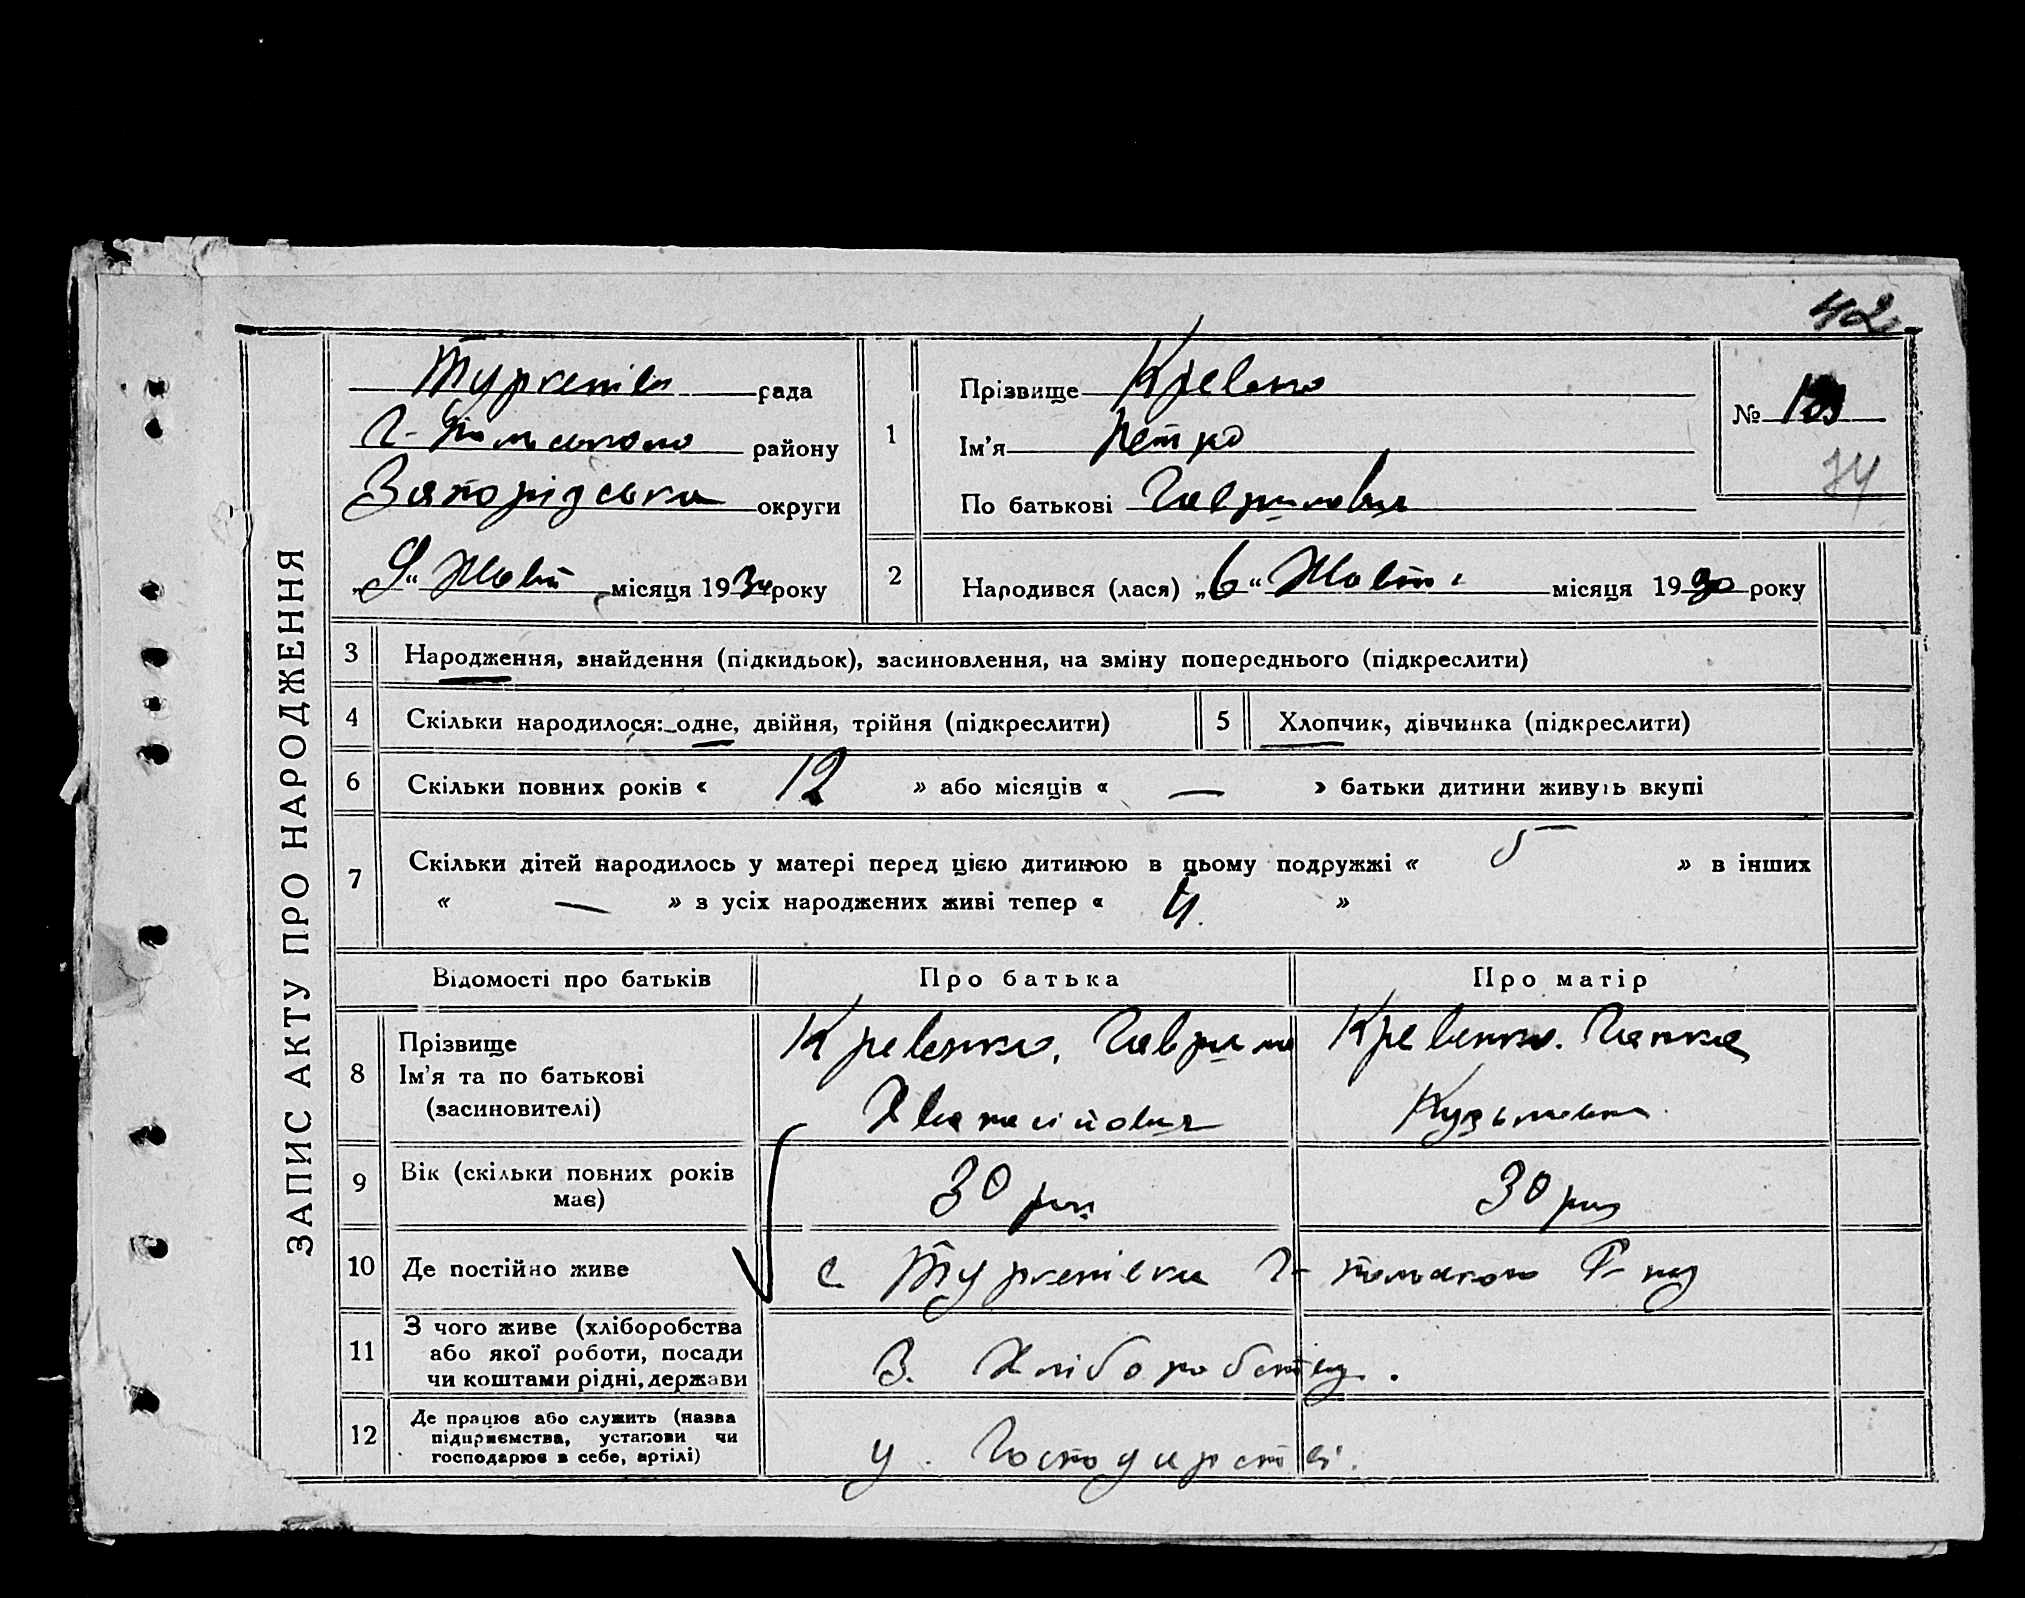 42
ЗАПИС АКТУ ПРО НАРОДЖЕННЯ
Туркенівс рада
Г-Пільського району
Запорідська округи
„9“ Жовт місяця 1930 року
1
Прізвище Кревенко
Ім'я Петро
По батькові Гаврилович
№
74
2
Народився (лася) „6“ Жовт. місяця 1930 року
3 Народження, знайдення (підкидьок), засиновлення, на зміну попереднього (підкреслити)
4 Скільки народилося: одне, двійня, трійня (підкреслити) 5 Хлопчик, дівчинка (підкреслити)
6 Скільки повних років « 12 » або місяців « — » батьки дитини живуть вкупі
7 Скільки дітей народилось у матері перед цією дитиною в цьому подружжі « 5 » в інших
« — » з усіх народжених живі тепер « 4. »
Відомості про батьків Про батька Про матір
8 Прізвище
Ім'я та по батькові
(засиновителі)
Кревенко, Гаврило
Кревенко. Гапка
Кузьмовна
9 Вік (скільки повних років
має)
30 рок
30 рок
10 Де постійно живе с Туркенівка Г-польского Р-ну
11 З чого живе (хліборобства
або якої роботи, посади
чи коштами рідні, держави
З. Хліборобства.
12 Де працює або служить (назва
підприємства, установи чи
господарює в себе, артілі)
у. Господарстві.